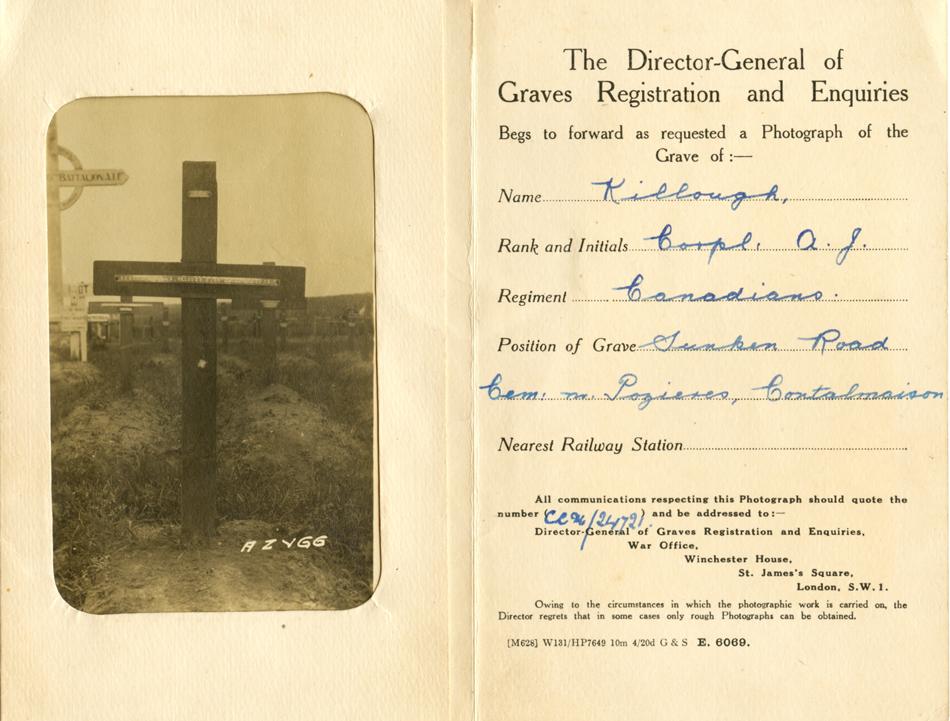 BATTALION A.I.F
A Z Y G G
The Director-General of
Graves Registration and Enquiries
Begs to forward as requested a Photograph of the
Grave of :—
Name Killough,
Rank and Initials Corpl. A. J.
Regiment Canadians.
Position of Grave Sunken Road
Cem. nr. Pozieres, Contalmaison
Nearest Railway Station
All communications respecting this Photograph should quote the
number ( ) and be addressed to :—
Director-General of Graves Registration and Enquiries,
War Office,
Winchester House,
St. James's Square,
London, S.W.1.
Owing to the circumstances in which the photographic work is carried on, the
Director regrets that in some cases only rough Photographs can be obtained.
[M628] W131/HP7649 10m 4/20d G & S E. 6069.